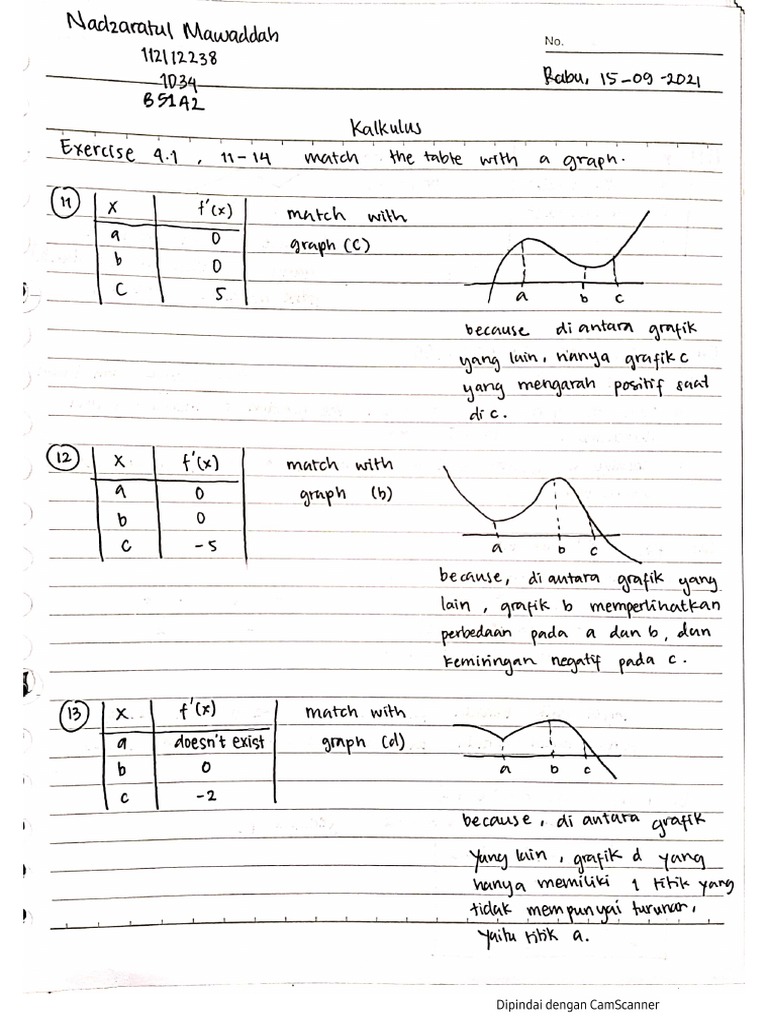 Nadzaratul Mawaddah
112112238
1D34
B51A2
No.
Rabu, 15-09-2021
Kalkulus
Exercise 4.1, 11-14 match the table with a graph.
11
x f'(x)
a 0
b 0
c 5
match with
graph (c)
a b c
because di antara grafik
yang lain, hanya grafik c
yang mengarah positif saat
di c.
12
x f'(x)
a 0
b 0
c -5
match with
graph (b)
a b c
because, di antara grafik yang
lain, grafik b memperlihatkan
perbedaan pada a dan b, dan
kemiringan negatif pada c.
13
x f'(x)
a doesn't exist
b 0
c -2
match with
graph (d)
a b c
because, di antara grafik
yang lain, grafik d yang
hanya memiliki 1 titik yang
tidak mempunyai turunan,
yaitu titik a.
Dipindai dengan CamScanner